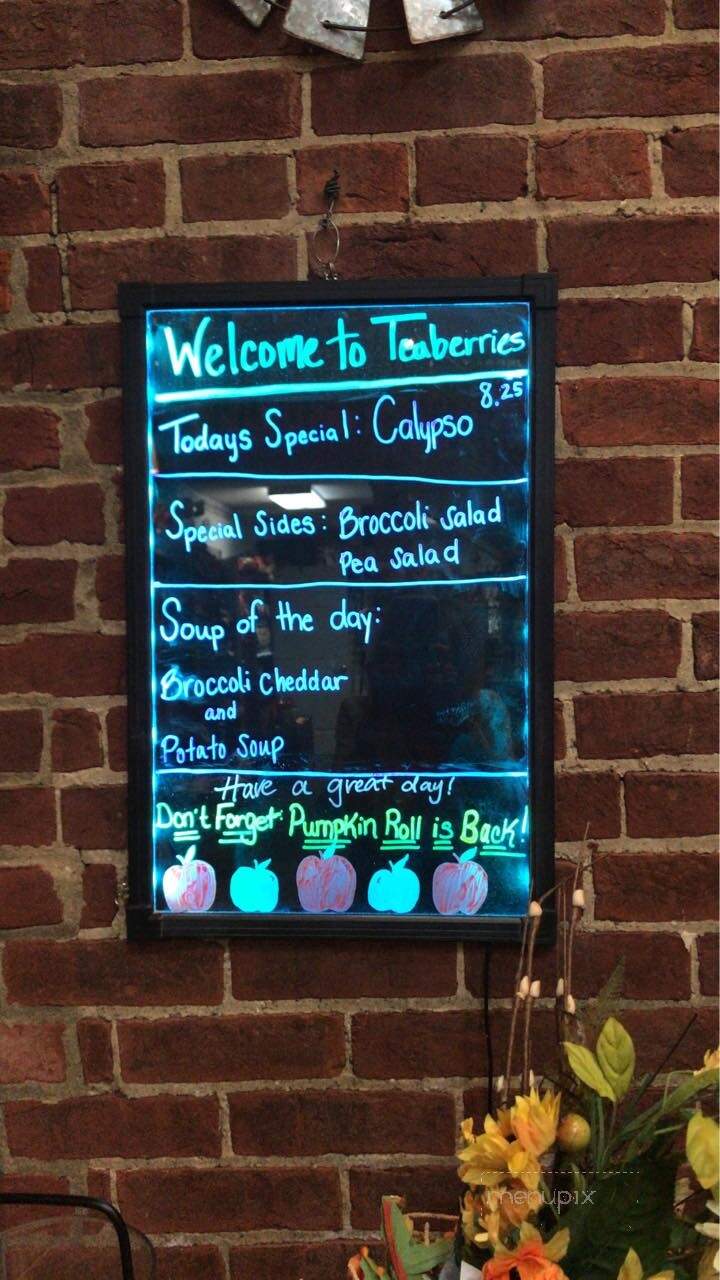 Welcome to Teaberries
8.25
Todays Special: Calypso
Special Sides: Broccoli Salad
Pea Salad
Soup of the day:
Broccoli Cheddar
and
Potato Soup
Have a great day!
Don't Forget: Pumpkin Roll is Back!
menupix